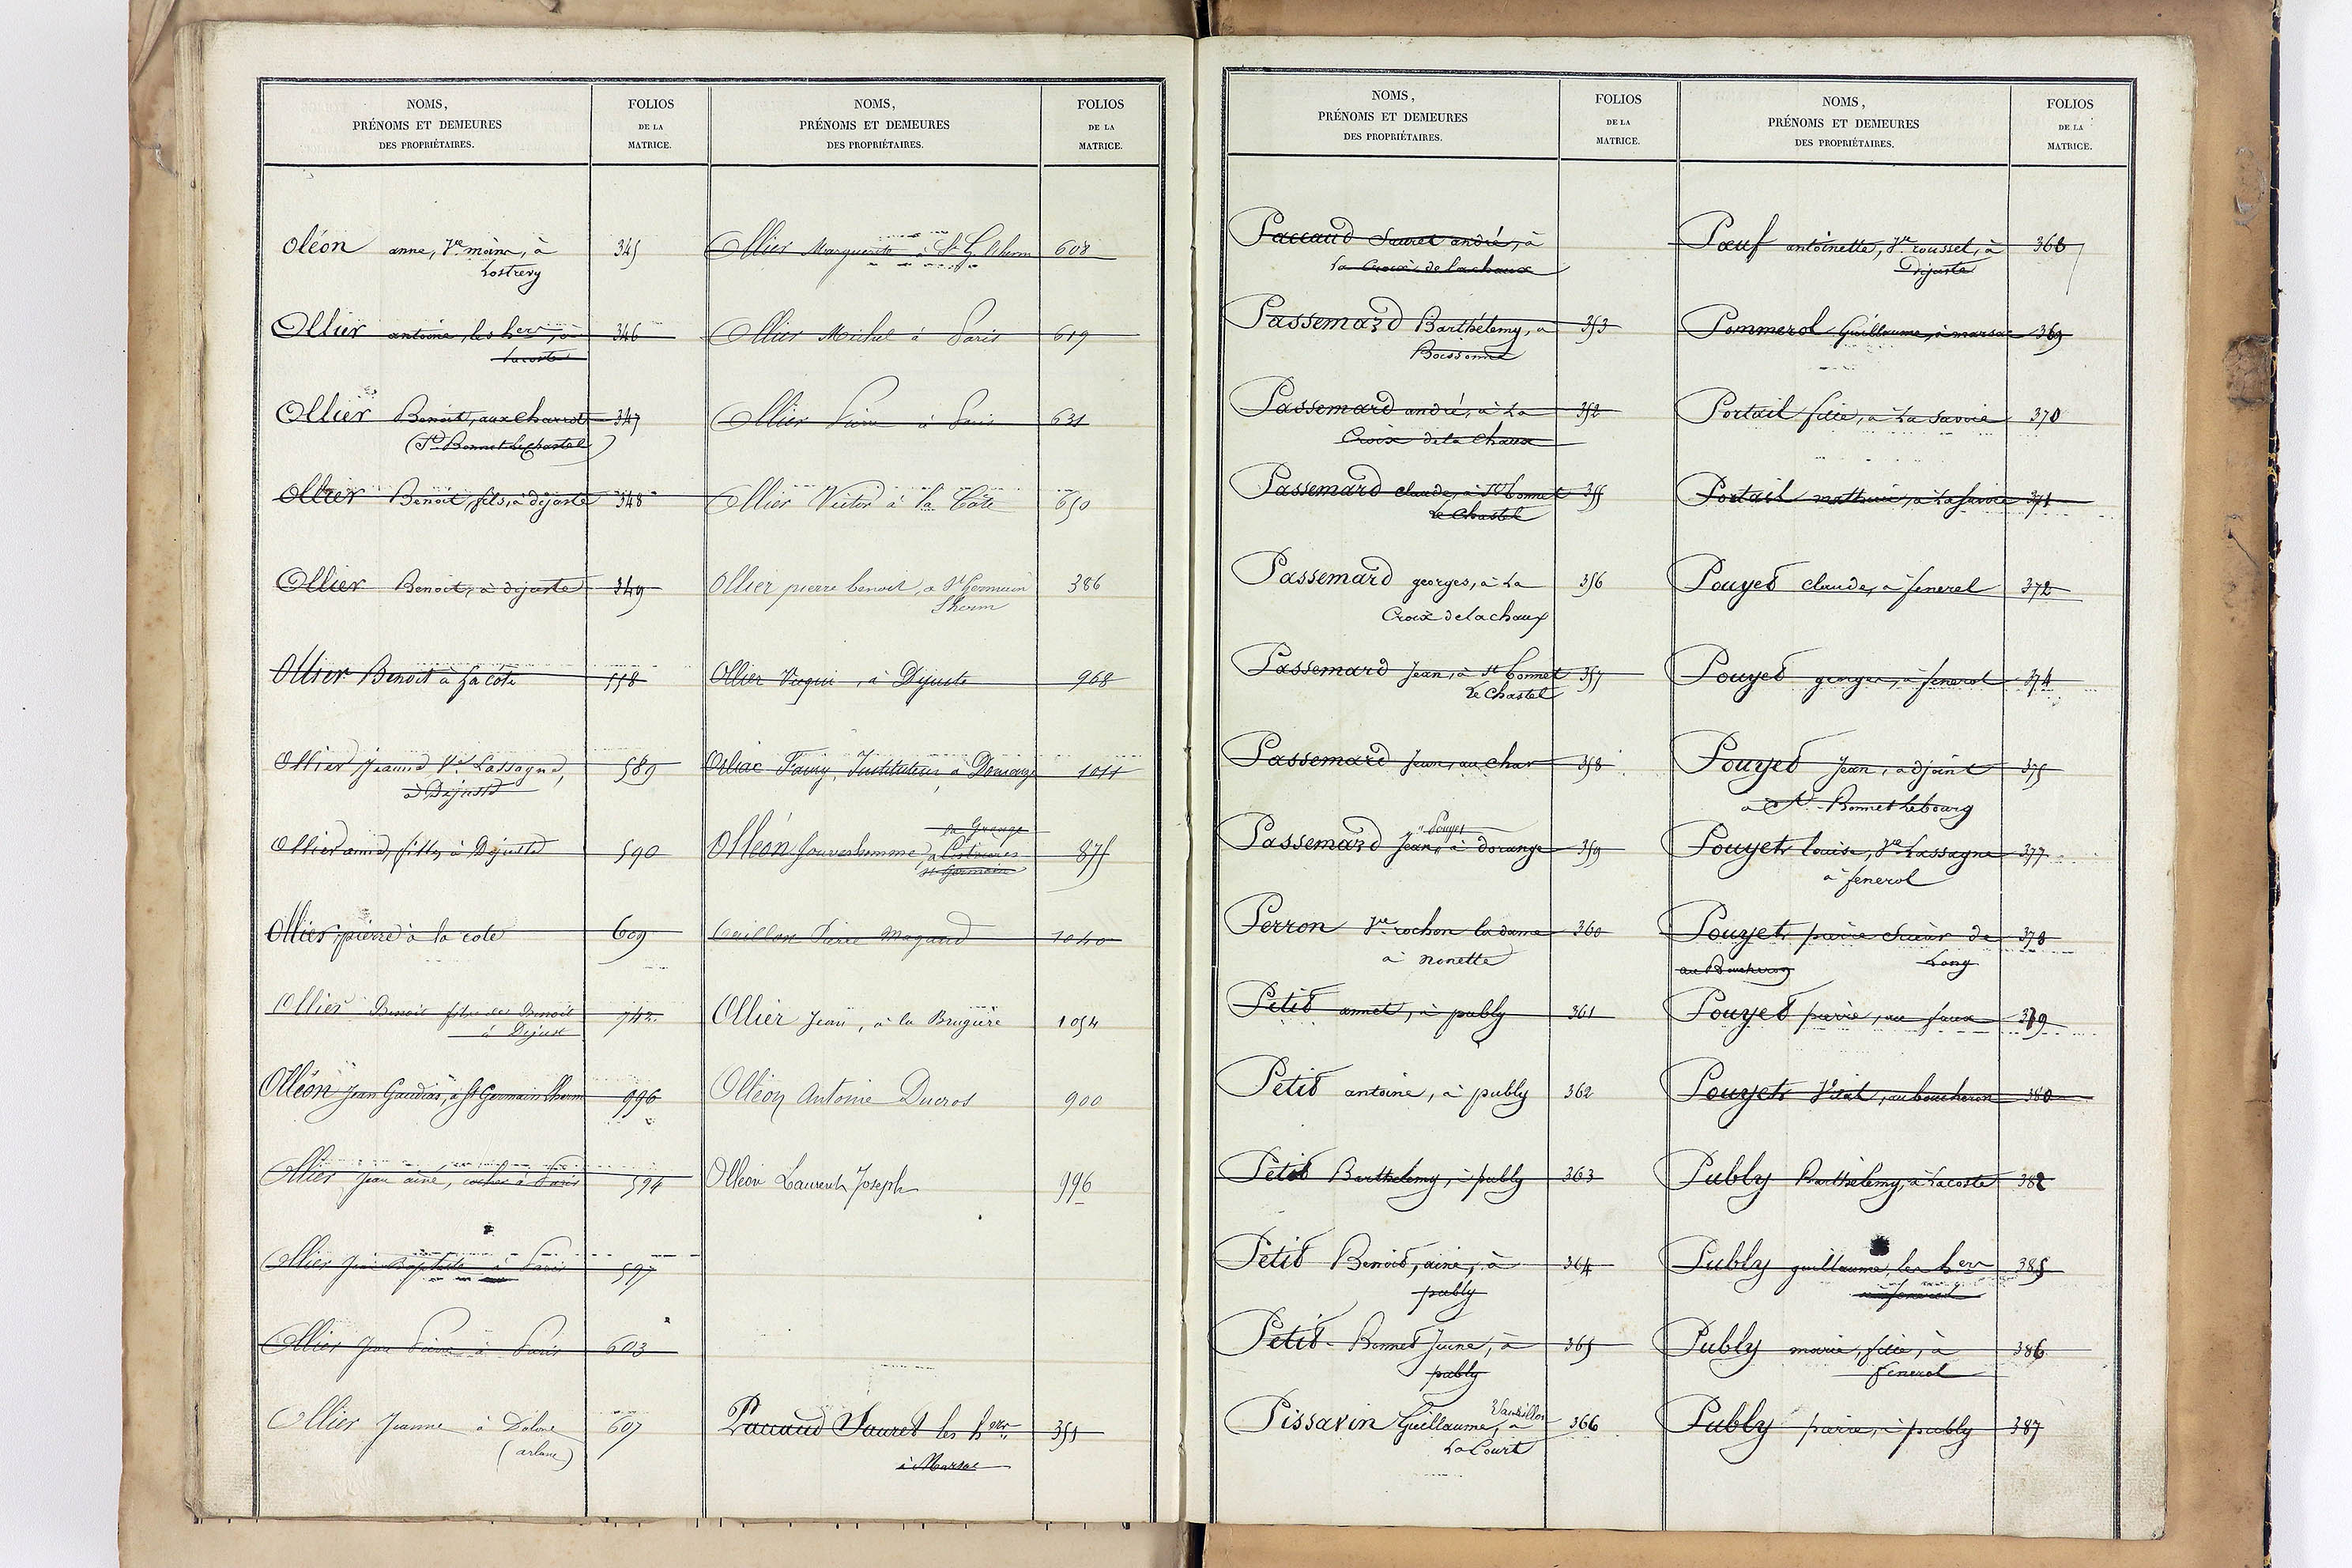 NOMS,
PRÉNOMS ET DEMEURES
DES PROPRIÉTAIRES.
FOLIOS
DE LA
MATRICE.
Oléon anne, Ve moine, à 345
Lostrevy
Ollier antoine, les hers, à 346
Lacoste
Ollier Benoit, aux charrot 347
(St Bonnet le Chastel)
Ollier Benoit, fils, à dejuste 348
Ollier Benoit, à dejuste 349
Ollier Benoit à la côte 558
Ollier Jeanne Ve Lassagne, 589
à Dejuste
Ollier anne, fille, à Dejuste 590
Ollier, pierre à la cote 609
Ollier Benoit fils de Benoit 742
à Dejust
Olléon Jean Gaudias, à St Germain l'herm 996
Ollier Jean ainé, cocher à Paris 594
Ollier Jean Baptiste à Paris 597
Ollier Jean Pierre à Paris 603
Ollier Jeanne à Dolore 607
(arlanc)
NOMS,
PRÉNOMS ET DEMEURES
DES PROPRIÉTAIRES.
FOLIOS
DE LA
MATRICE.
Ollier Marguerite à St G. l'herm 608
Ollier Michel à Paris 619
Ollier Pierre à Paris 631
Ollier Victor à la Côte 650
Ollier pierre benoit, a St Germain 386
l'herm
Ollier à Dejuste 968
Orliac Faury, Instituteur à Doranges 1011
la Grange
Olléon Jouveshomme, a 875
St Germain
Pierre Magaud 1040
Ollier Jean, à la Brugière 1054
Olléon Antoine Ducros 900
Olléon Laurent Joseph 996
Paccaud Sauret les hers 351
à Marsac
NOMS,
PRÉNOMS ET DEMEURES
DES PROPRIÉTAIRES.
FOLIOS
DE LA
MATRICE.
Paccaud Sauret andré, à
la Croix de la chaux
Passemard Barthélemy, a 353
Boissonne
Passemard andré, à La 352
Croix de la Chaux
Passemard claude, à St bonnet 355
Le Chastel
Passemard georges, à La 356
Croix de la chaux
Passemard Jean, à St bonnet 357
Le Chastel
Passemard Jean, au char 358
" Pouyet
Passemard Jean " à dorange 359
Perron Ve rochon la dame 360
à nonette
Petit annet, à publy 361
Petit antoine, à publy 362
Petit Barthelemy, à publy 363
Petit Benoit, ainé, à 364
publy
Petit Bonnet Jeune, à 365
publy
Pissavin Guillaume, à 366
La Court
NOMS,
PRÉNOMS ET DEMEURES
DES PROPRIÉTAIRES.
FOLIOS
DE LA
MATRICE.
Pœuf antoinette, Ve rousset, à 368
Dejuste
Pommerol Guillaume, à marsac 369
Portail fille, à La Savoie 370
Portail mathieu, à La Savoie 371
Pouyet claude, à fenerol 372
Pouyet georges, à fenerol 374
Pouyet Jean, adjoint 375
a St Bonnet Lebourg
Pouyet louise, Ve Lassagne 377
à fenerol
Pouyet pierre Sieur de 378
au Boucheron Long
Pouyet pierre, au faux 379
Pouyet Vital, au boucheron 380
Publy Barthélemy, à Lacoste 382
Publy guillaume, les hers 385
à fenerol
Publy marie, fille, à 386
fenerol
Publy pierre, à publy 387